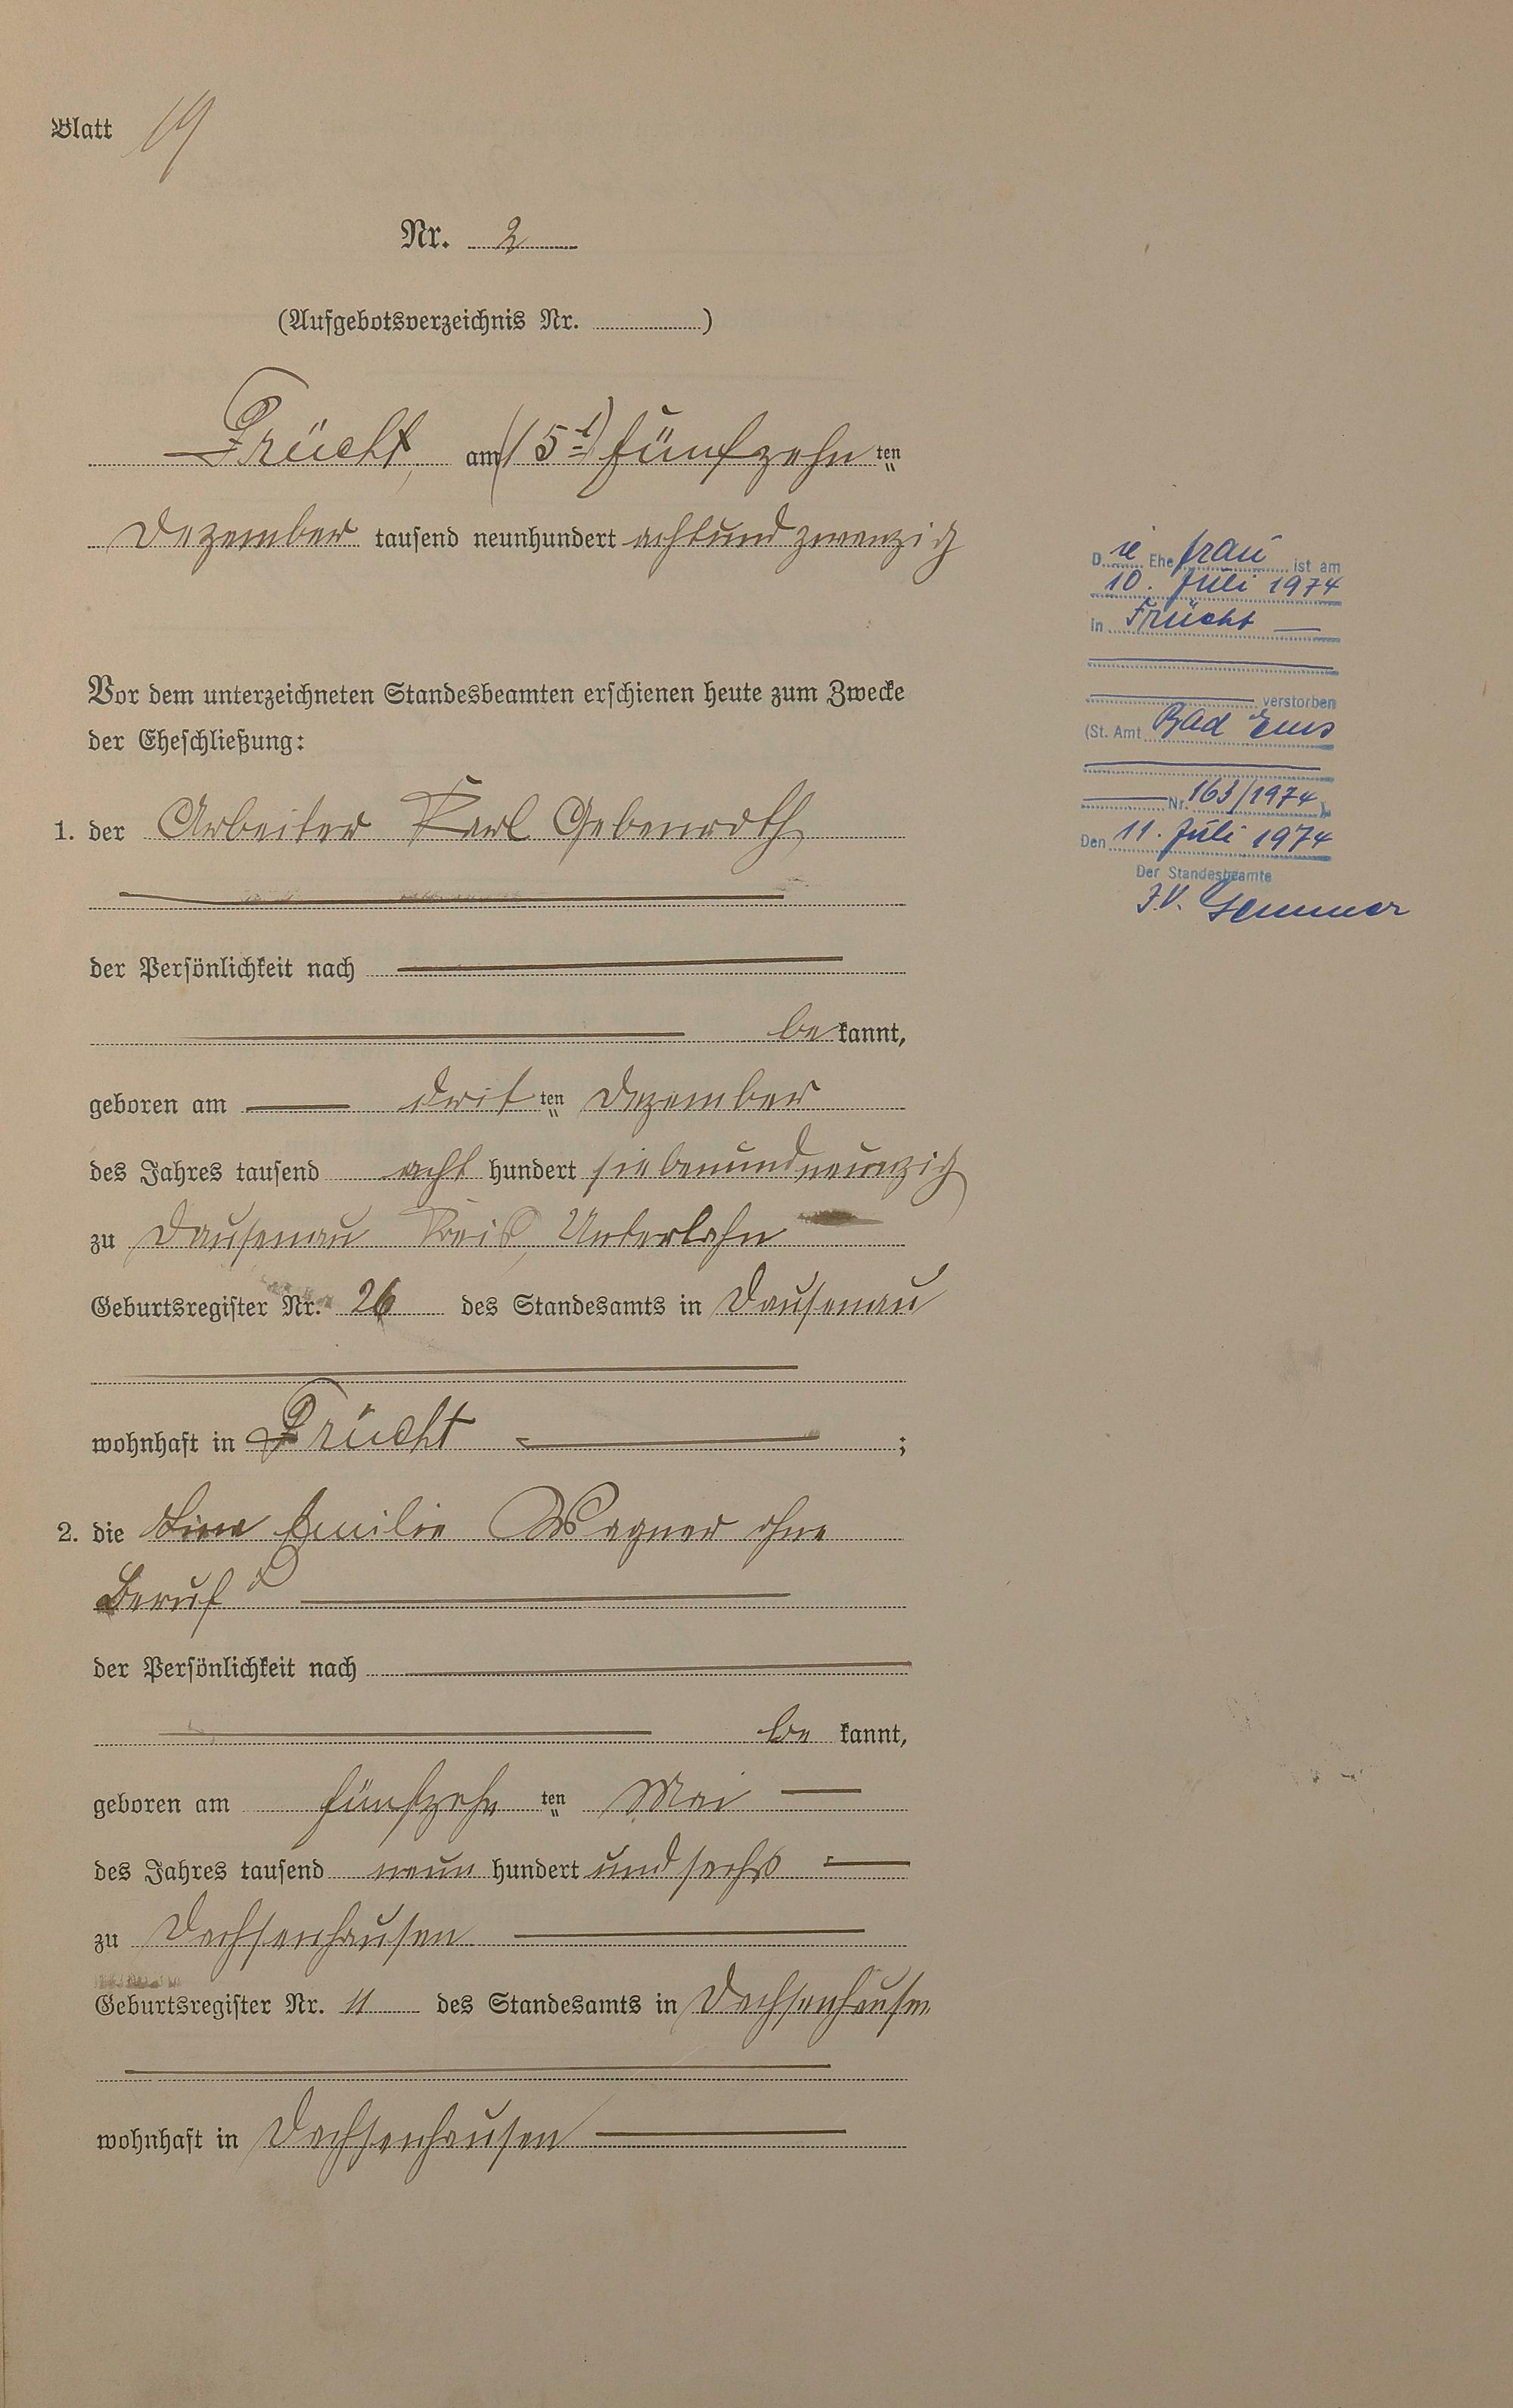 Blatt 19
Nr. 2
(Aufgebotsverzeichnis Nr. )
Frücht, am (15t) fünfzehn ten
Dezember tausend neunhundert achtundzwanzig
Vor dem unterzeichneten Standesbeamten erschienen heute zum Zwecke
der Eheschließung:
1. der Arbeiter Karl Gebenroth
der Persönlichkeit nach
be kannt,
geboren am drit ten Dezember
des Jahres tausend acht hundert siebenundneunzig
zu Dausenau Kreis Unterlahn
Geburtsregister Nr. 26 des Standesamts in Dausenau
wohnhaft in Frücht ;
2. die Emilie Wagner ohne
Beruf
der Persönlichkeit nach
be kannt,
geboren am fünfzehn ten Mai
des Jahres tausend neun hundert und sechs
zu Dachsenhausen
Geburtsregister Nr. 11 des Standesamts in Dachsenhausen
wohnhaft in Dachsenhausen
Die Ehefrau ist am
10. Juli 1974
in Frücht
verstorben
(St. Amt Bad Ems
Nr. 163/1974)
Den 11. Juli 1974
Der Standesbeamte
I.V.